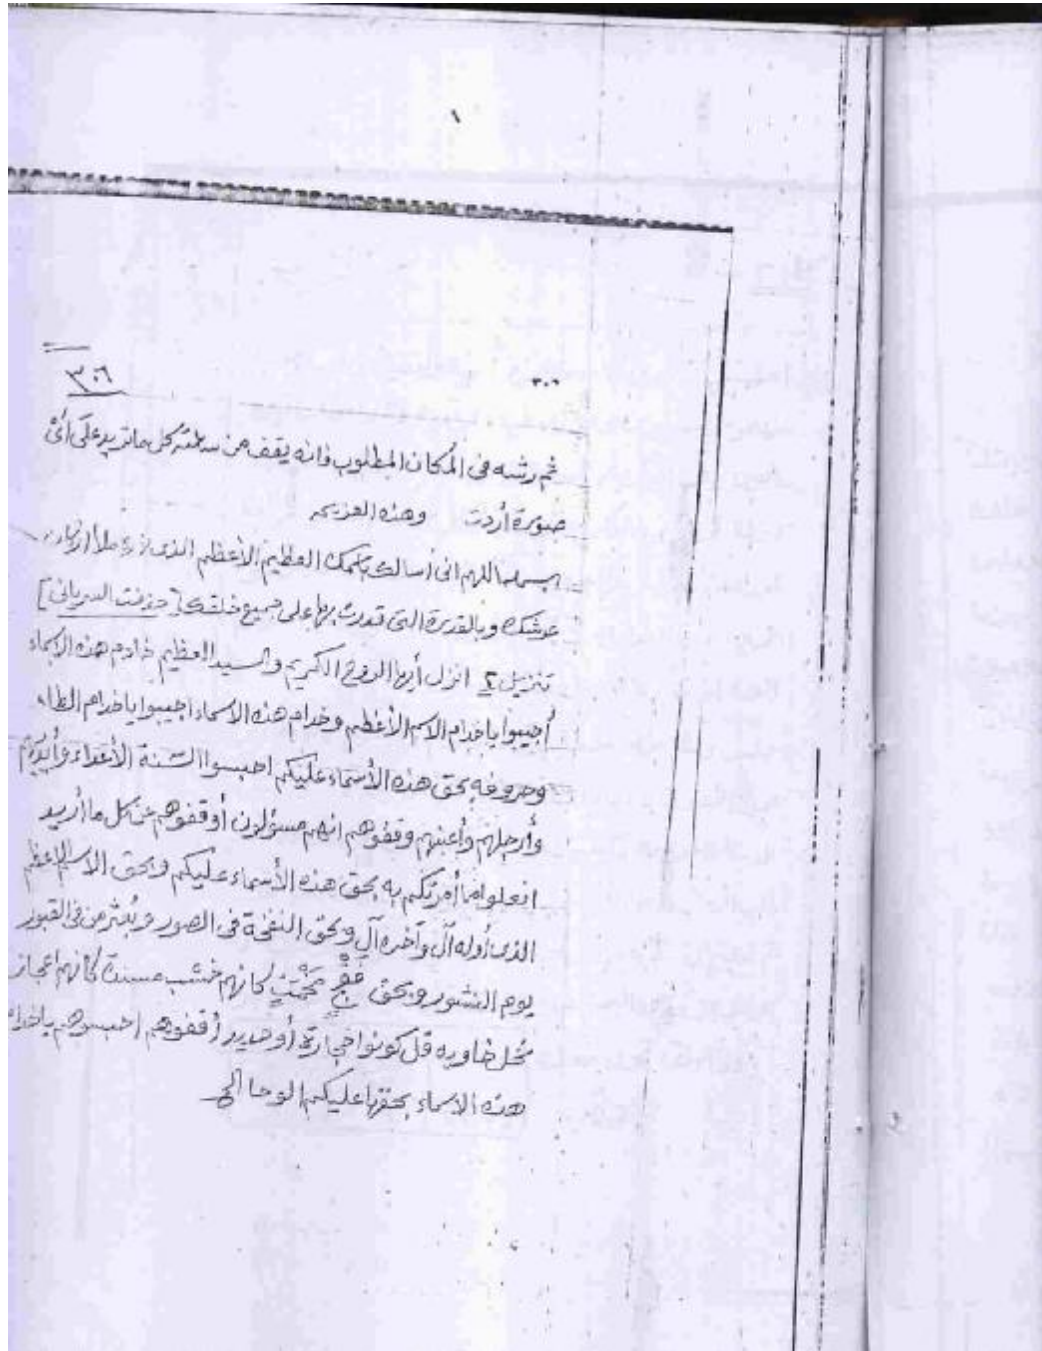 ١
٣٠٦
٣٠٦
ثم رشه فى المكان المطلوب فانه يقف من ساعته كل ما تريد على أى
صورة أردت وهذه العزيمه
بسمله اللهم انى أسالك باسمك العظيم الأعظم الذى أركان
عرشك وبالقدرة التى قدرت بها على جميع خلقك [حذفت السريانى]
تنزيل انزل أيها الروح الكريم والسيد العظيم خادم هذه الاسماء
أجيبوا يا خدام الاسم الأعظم وخدام هذه الاسماء اجيبوا يا خدام الطاء
وحروفه بحق هذه الأسماء عليكم احبسوا السنة الأعداء وأيديهم
وأرجلهم وأعينهم وقفوهم انهم مسؤلون أوقفوهم عن كل ما أريد
افعلوا ما أمرتكم به بحق هذه الأسماء عليكم وبحق الاسم الاعظم
الذى أوله آل وآخره آل وبحق النفخة فى الصور وبعثر من فى القبور
يوم النشور وبحق كانهم خشب مسندة كانهم اعجاز
نخل خاويه قل كونوا حجارة أو حديد أقفوهم احبسوهم يا خدام
هذه الاسماء بحقها عليكم الوحا الخ